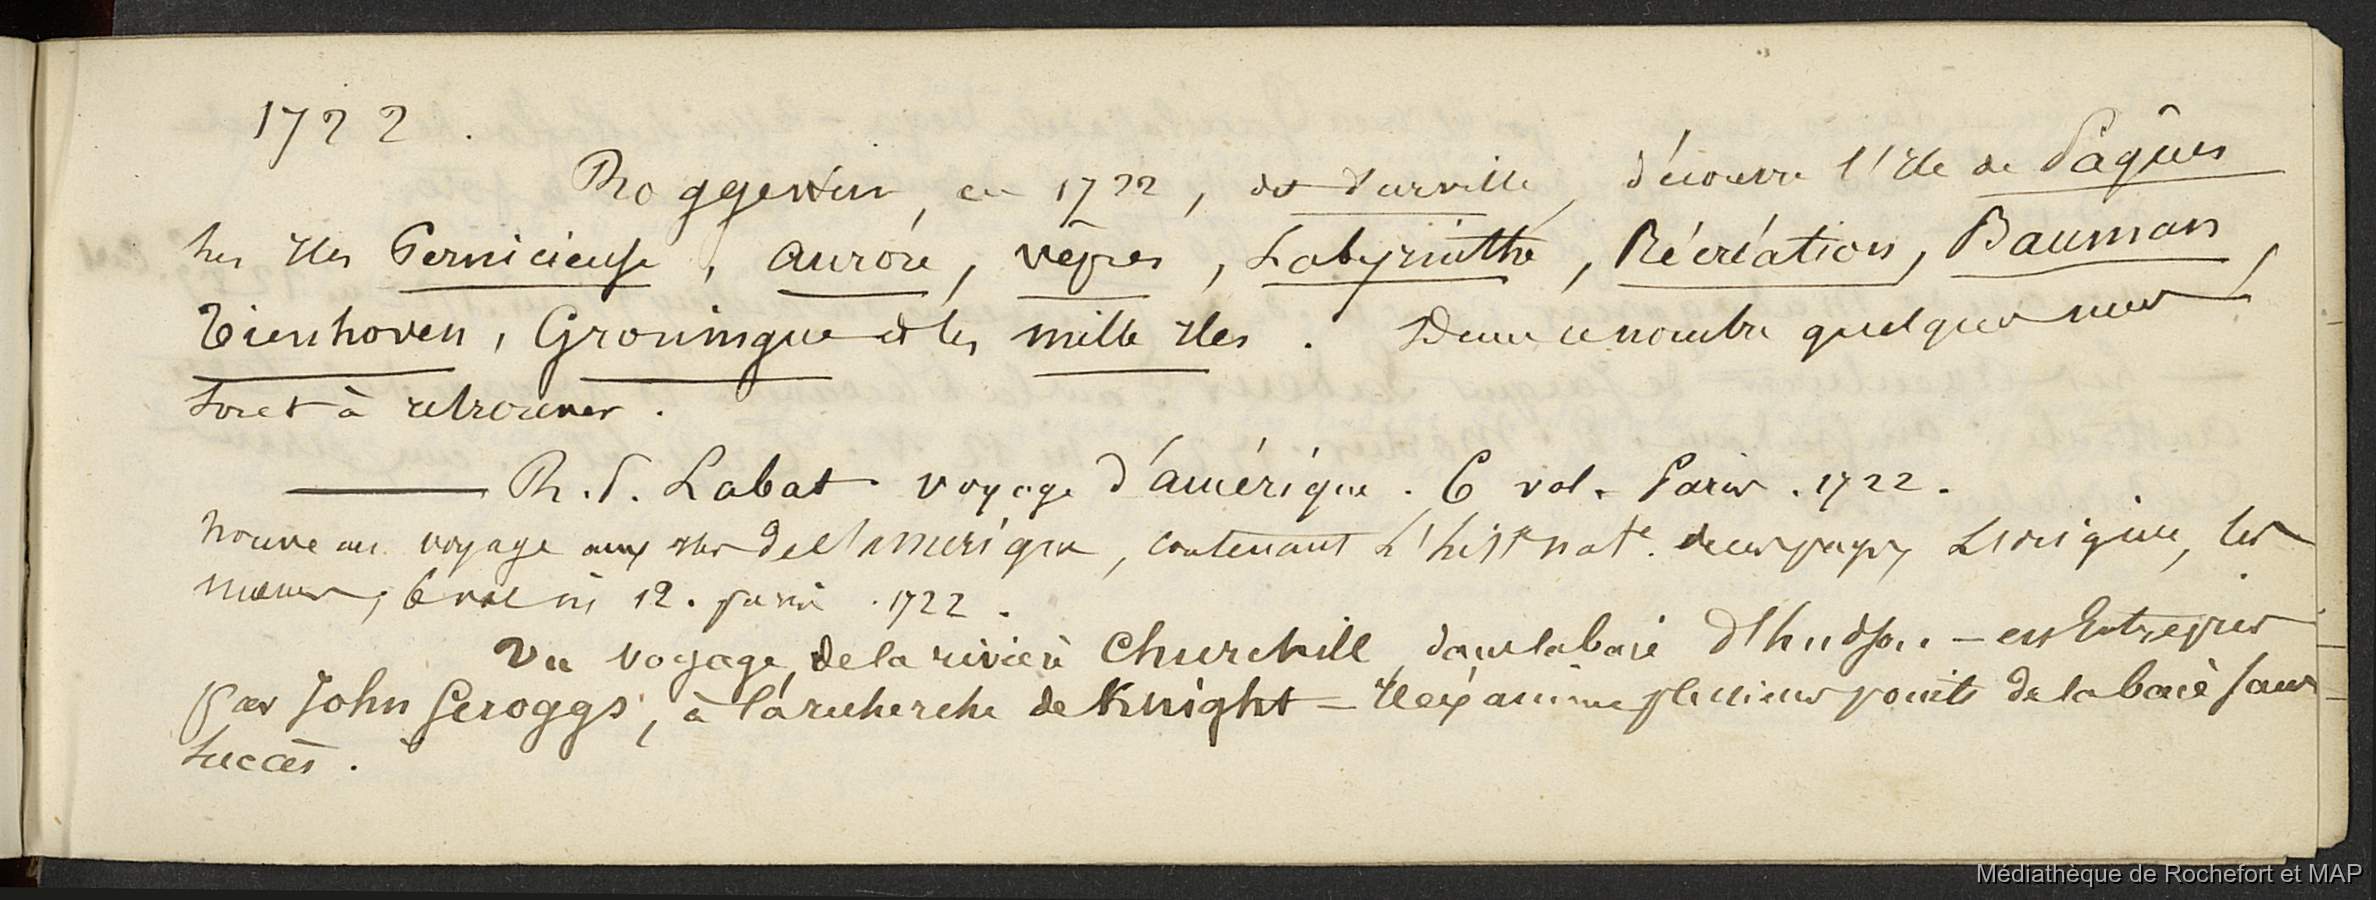 1722.
Roggewin, en 1722, dt d'urville, découvre l'Ile de Pâques
les Iles Pernicieuse, aurore, vêpres, Labyrinthe, Récréation, Bauman,
Tienhoven, Groningue et les mille Iles. Dans ce nombre quelques unes
sont à retrouver.
R. P. Labat voyage d'amérique. 6 vol. Paris. 1722.
nouveau voyage aux iles de l'amérique, contenant l'histre nate. de ces pays, L'origine, les
mœurs, 6 vol in 12. paris. 1722.
Un voyage, de la rivière Churchill, dans la baie d'hudson — est Entrepris
par John Scroggs, à la recherche de Knight — Il éxamine plusieurs points de la baie sans
succès.
Médiathèque de Rochefort et MAP